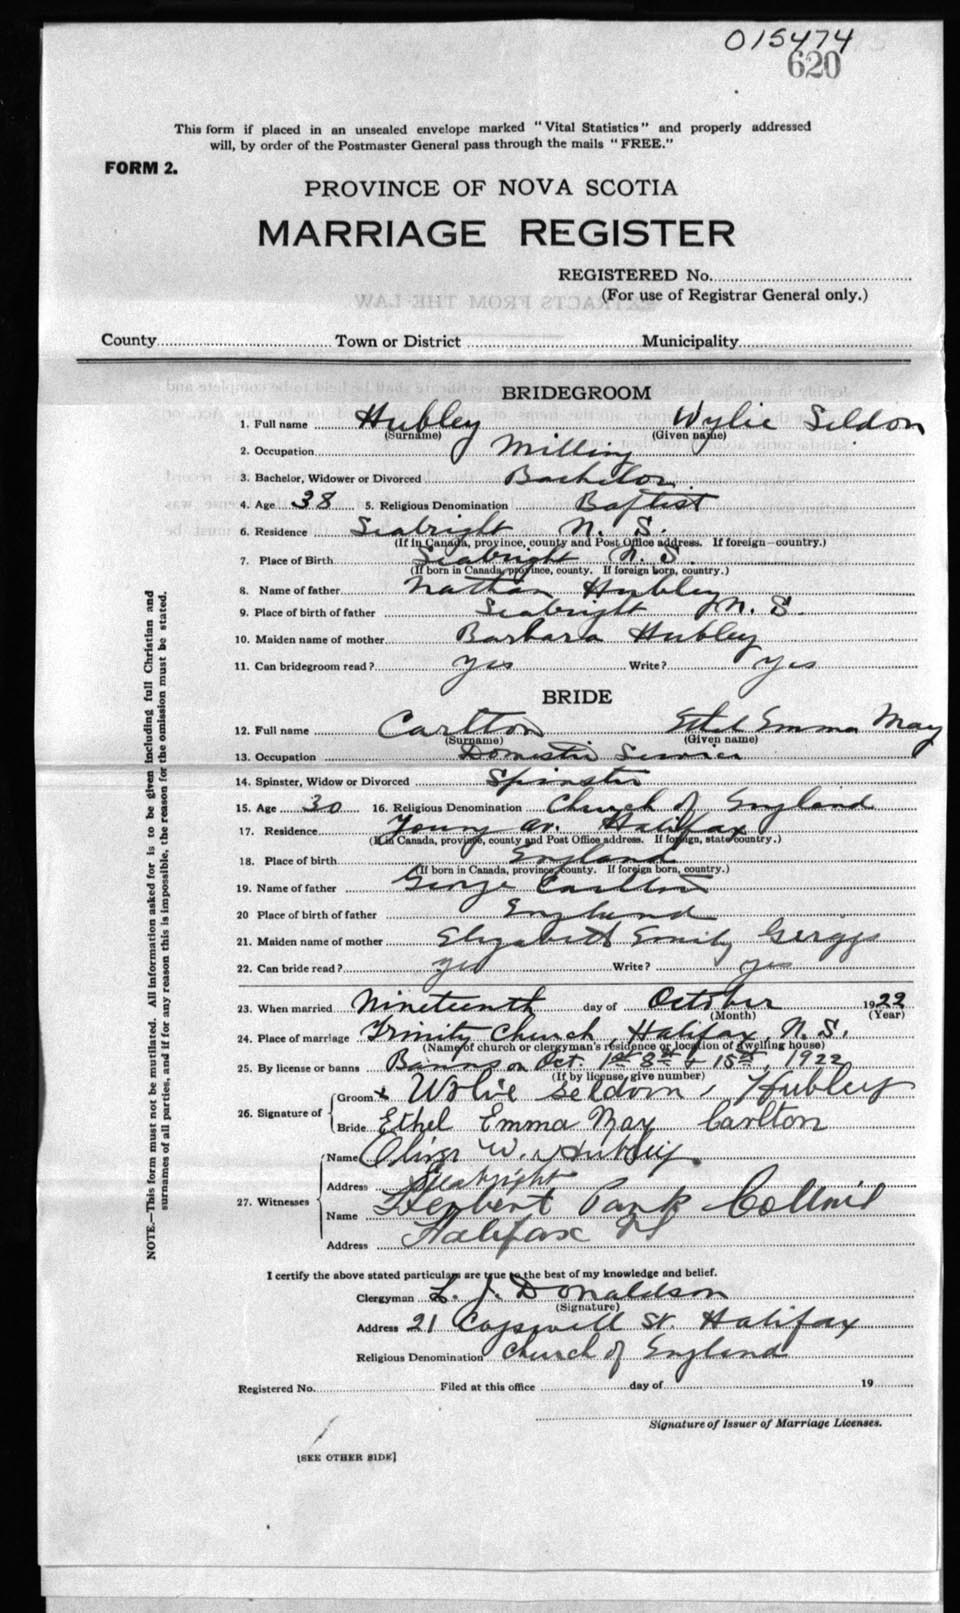 015474
620
This form if placed in an unsealed envelope marked "Vital Statistics" and properly addressed
will, by order of the Postmaster General pass through the mails "FREE."
FORM 2.
PROVINCE OF NOVA SCOTIA
MARRIAGE REGISTER
REGISTERED No.
(For use of Registrar General only.)
EXTRACTS FROM THE LAW
County Town or District Municipality
BRIDEGROOM
1. Full name Hubley Wylie Seldon
(Surname) (Given name)
2. Occupation Milling
3. Bachelor, Widower or Divorced Bachelor
4. Age 38 5. Religious Denomination Baptist
6. Residence Seabright N. S.
(If in Canada, province, county and Post Office address. If foreign—country.)
7. Place of Birth Seabright N. S.
(If born in Canada, province, county. If foreign born, country.)
8. Name of father Nathan Hubley
9. Place of birth of father Seabright N. S.
10. Maiden name of mother Barbara Hubley
11. Can bridegroom read? yes Write? yes
BRIDE
12. Full name Carlton Ethel Emma May
(Surname) (Given name)
13. Occupation Domestic Service
14. Spinster, Widow or Divorced Spinster
15. Age 30 16. Religious Denomination Church of England
17. Residence Young Av. Halifax
(If in Canada, province, county and Post Office address. If foreign, state country.)
18. Place of birth England
(If born in Canada, province, county. If foreign born, country.)
19. Name of father George Carlton
20 Place of birth of father England
21. Maiden name of mother Elizabeth Emily
22. Can bride read? yes Write? yes
23. When married Nineteenth day of October 1922
(Month) (Year)
24. Place of marriage Trinity Church, Halifax, N. S.
(Name of church or clergyman's residence or location of dwelling house)
25. By license or banns Banns on Oct. 1st 8th & 15th, 1922
(If by license, give number)
26. Signature of
Groom x Wylie Seldom Hubley
Bride Ethel Emma May Carlton
27. Witnesses
Name Oliver W. Hubley
Address Seabright
Name Herbert Park
Address Halifax NS
I certify the above stated particulars are true to the best of my knowledge and belief.
Clergyman L. J. Donaldson
(Signature)
Address 21 Cogswell St. Halifax
Religious Denomination Church of England
Registered No. Filed at this office day of 19
Signature of Issuer of Marriage Licenses.
[SEE OTHER SIDE]
NOTE.—This form must not be mutilated. All information asked for is to be given including full Christian and
surnames of all parties, and if for any reason this is impossible, the reason for the omission must be stated.